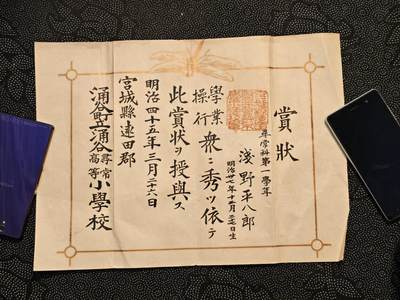 賞狀
科第一學年
淺野平八郎
明治卅七年十一月日生
學業
操行
衆ニ秀ツ依テ
此賞狀ヲ授與ス
明治四十五年三月二十六日
宮城縣遠田郡
涌谷町立涌谷尋常高等小學校